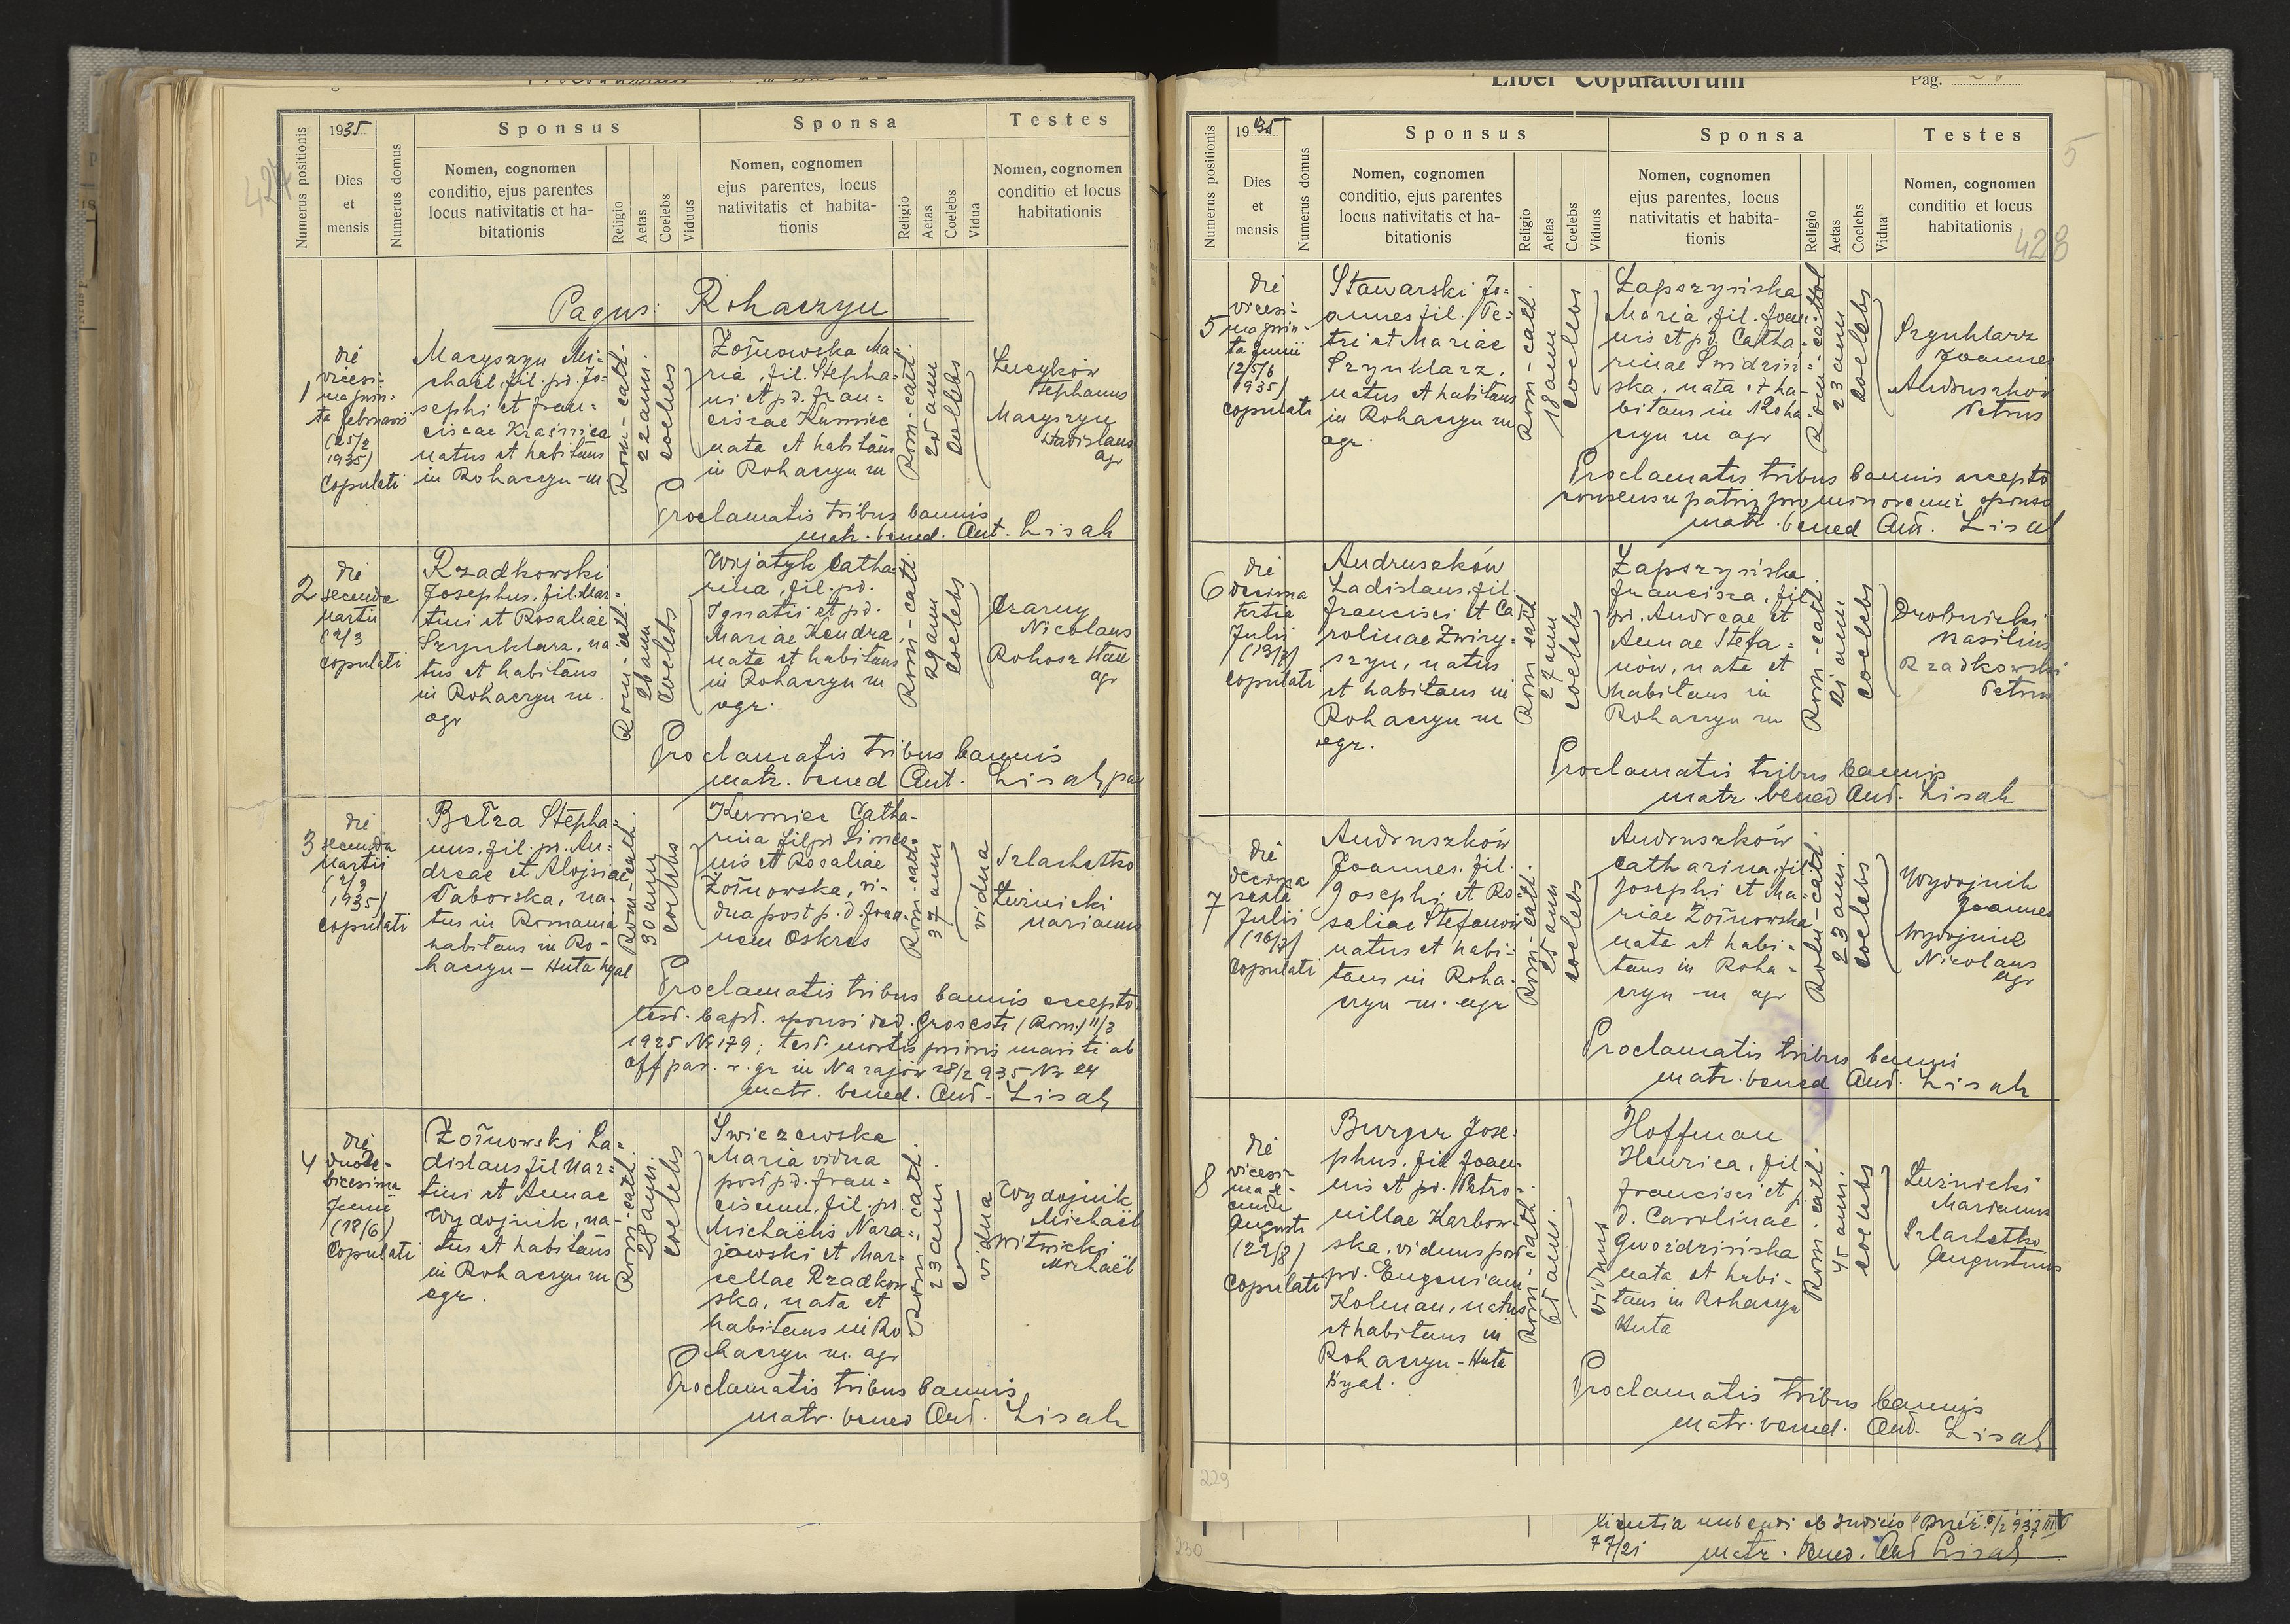 427
Numerus positionis
1935
Dies
et
mensis
Numerus domus
Sponsus
Nomen, cognomen
conditio, ejus parentes
locus nativitatis et ha-
bitationis
Religio
Aetas
Coelebs
Viduus
Sponsa
Nomen, cognomen
ejus parentes, locus
nativitatis et habita-
tionis
Religio
Aetas
Coelebs
Vidua
Testes
Nomen, cognomen
conditio et locus
habitationis
Pagus: Rohaczyn
1
die
vicesi-
ma quin-
ta februarii
(25/2
1935)
copulati
Maryszyn Mi-
chael, fil. pd. Jo-
sephi et Fran-
ciscae Kraśnica
natus et habitans
in Rohaczyn m.
Rom-cath.
22 anni.
coelebs
Żołnowska Ma-
ria, fil. Stepha-
ni et pd. Fran-
ciscae Kurniec
nata et habitans
in Rohaczyn m
Rom-cath.
25 anni
coelebs
Lucyków
Stephanus
Maryszyn
Ladislaus
agr
Proclamatis tribus bannis
matr. bened. Ant. Lisak
2
die
secunda
Martii
(2/3
copulati
Rzadkowski
Josephus, fil. Mar-
tini et Rosaliae
Szynklarz, na
tus et habitans
in Rohaczyn m.
agr
Rom-cath.
26 anni
coelebs
Wojatyk Catha-
rina, fil. pd.
Ignatii et pd.
Mariae Kendra
nata et habitans
in Rohaczyn m
agr.
Rom-cath
29 anni
coelebs
Czarny
Nicolaus
Rohosz Stan
agr
Proclamatis tribus bannis
matr. bened Ant. Lisak, par
3
die
secunda
Martii
(2/3
1935)
copulati
Betza Stepha-
nus, fil. pd. An-
dreae et Aloysiae
Taborska, na-
tus in Romania
habitans in Ro-
haczyn - Huta kyal
Rom-cath.
30 anni
coelebs
Kurniec Catha-
rina fil pd Simeo-
nis et Rosaliae
Żołnowska, vi-
dua post p.d. Joan-
nem Oskres
Rom-cath.
37 anni
vidua
Szlachetko
Luźnicki
Marianus
Proclamatis tribus bannis accepto
test. bapt. sponsi ded. Grosesti (Rom.) 11/3
1925 No 179; test. mortis primi mariti ab
off par. r. gr in Narajów 28/2 935 Nr 24
matr. bened. Ant. Lisak
4
die
duode-
vicesima
Junii
(18/6)
copulati
Żołnowski La-
dislaus fil Mar-
tini et Annae
Wydojnik, na-
tus et habitans
in Rohaczyn m
agr.
Rom-cath.
28 anni.
coelebs
Swiczewska
Maria vidua
post pd. Fran-
ciscum, fil. pd.
Michaëlis Nara-
jowski et Mar-
cellae Rzadkow
ska, nata et
habitans in Ro
haczyn m. agr
Rom cath.
23 anni.
vidua
Wydojnik
Michaël
Witwicki
Michaël
Proclamatis tribus bannis
matr. bened Ant. Lisak
Liber Copulatorum
Pag.
5
428
Numerus positionis
1935
Dies
et
mensis
Numerus domus
Sponsus
Nomen, cognomen
conditio, ejus parentes
locus nativitatis et ha-
bitationis
Religio
Aetas
Coelebs
Viduus
Sponsa
Nomen, cognomen
ejus parentes, locus
nativitatis et habita-
tionis
Religio
Aetas
Coelebs
Vidua
Testes
Nomen, cognomen
conditio et locus
habitationis
5
die
vicesi-
ma quin-
ta Junii
(25/6
1935)
copulati
Stawarski Jo-
annes fil. Pe-
tri et Mariae
Szynklarz,
natus et habitans
in Rohaczyn m
agr.
Rom-cath.
18 anni
coelebs
Łapszyńska
Maria, fil. Joan-
nis et pd. Catha-
rinae Swidziń-
ska, nata et ha-
bitans in Roha-
czyn m agr
Rom-cathol
23 anni
coelebs
Szynklarz
Joannes
Andruszków
Petrus
Proclamatis tribus bannis accepto
consensu patris pro minorenni sponso
matr. bened Ant. Lisak
6
die
decima
tertia
Julii
(13/7)
copulati
Andruszków
Ladislaus, fil.
Francisci et Ca
rolinae Zwiry-
szyn, natus
et habitans in
Rohaczyn m
agr.
Rom-cath
27 anni
coelebs
Łapszyńska
Francisca, fil
pd. Andreae et
Annae Stefa-
nów, nata et
habitans in
Rohaczyn m
Rom-cath.
21 anni
coelebs
Drobnicki
Basilius
Rzadkowski
Petrus
Proclamatis tribus bannis
matr. bened Ant. Lisak
7
die
decima
sexta
Julii
(16/7)
copulati
Andruszków
Joannes, fil.
Josephi et Ro
saliae Stefanów
natus et habi-
tans in Roha-
czyn m. agr
Rom-cath.
25 anni
coelebs
Andruszków
Catharina, fil
Josephi et Ma-
riae Żołnowska
nata et habi-
tans in Roha-
czyn m agr
Rom-cath.
23 anni.
coelebs
Wydojnik
Joannes
Wydojnik
Nicolaus
agr
Proclamatis tribus bannis
matr. bened Ant. Lisak
8
die
vicesi-
ma se-
cunda
Augusti
(22/8)
copulati
Burger Jose-
phus, fil Joan-
nis et pd. Petro-
nillae Karbow-
ska, viduus post
pd. Eugeniam
Kolman, natus
et habitans in
Rohaczyn - Huta
kyal.
Rom-cath.
65 anni.
viduus
Hoffman
Henrica, fil
Francisci et p
d. Carolinae
Gwoździńska
nata et habi-
tans in Rohaczyn
Huta
Rom. cath.
45 anni.
coelebs
Luźnicki
Marianus
Szlachetko
Augustinus
Proclamatis tribus bannis
matr. bened. Ant. Lisak
229
230
licentia nubendi ab Judicio
77/21 matr. bened. Ant Lisak